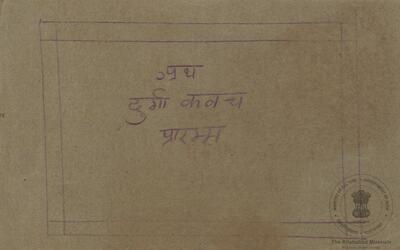 अथ
दुर्गा कवच
प्रारम्भ
The Allahabad Museum